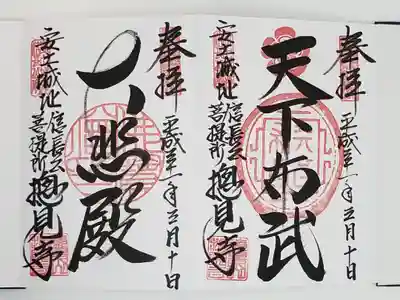 奉拝
平成年月十日
天下布武
安土城址
信長公
菩提所
摠見寺
奉拝
平成年月十日
大悲殿
安土城址
信長公
菩提所
摠見寺